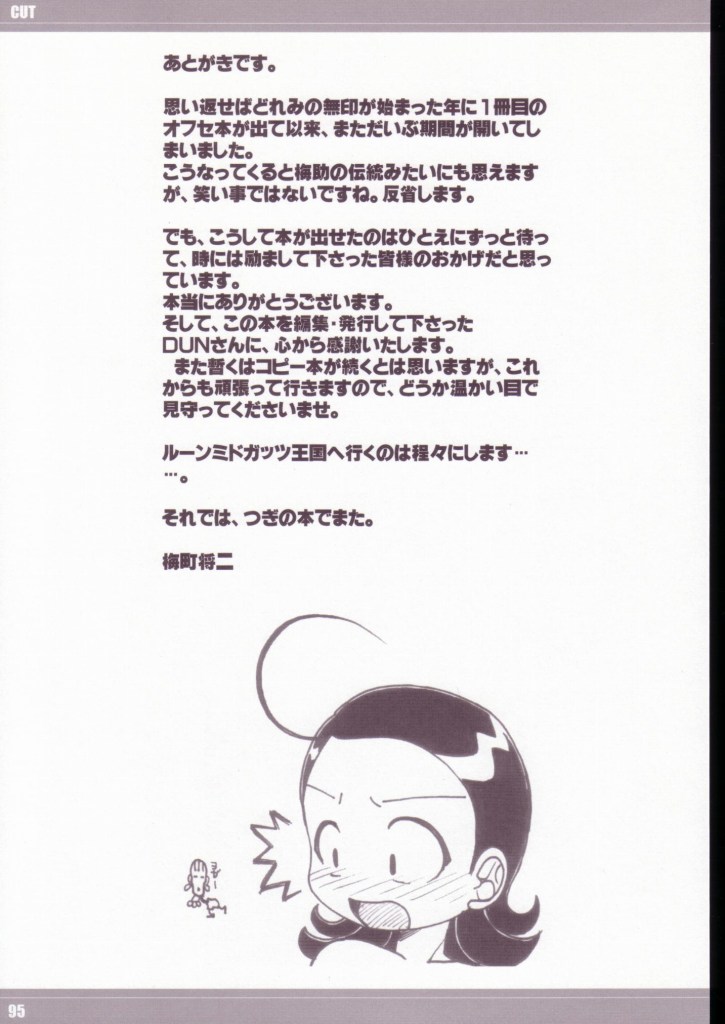 CUT
あとがきです。
思い返せばどれみの無印が始まった年に1冊目の
オフセ本が出て以来、まただいぶ期間が開いてし
まいました。
こうなってくると梅助の伝統みたいにも思えます
が、笑い事ではないですね。反省します。
でも、こうして本が出せたのはひとえにずっと待っ
て、時には励まして下さった皆様のおかげだと思っ
ています。
本当にありがとうございます。
そして、この本を編集・発行して下さった
DUNさんに、心から感謝いたします。
また暫くはコピー本が続くとは思いますが、これ
からも頑張って行きますので、どうか温かい目で
見守ってくださいませ。
ルーンミドガッツ王国へ行くのは程々にします…
…。
それでは、つぎの本でまた。
梅町将二
95